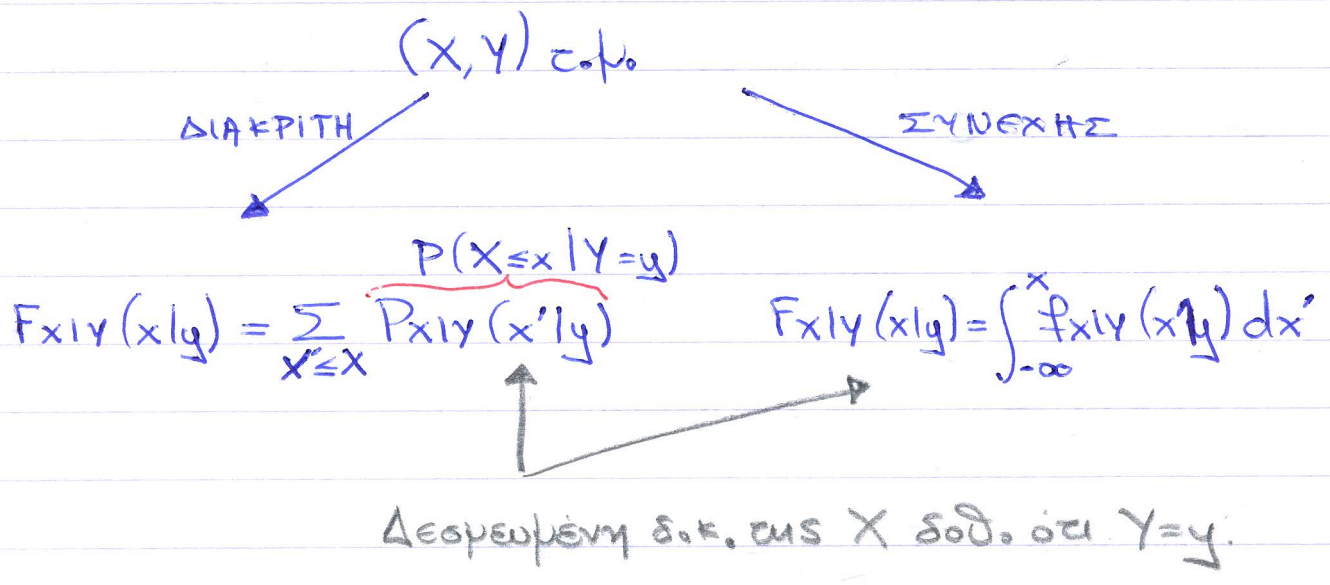 (X, Y) τ.μ.
ΔΙΑΚΡΙΤΗ ΣΥΝΕΧΗΣ
P(X≤x|Y=y)
F_{X|Y}(x|y) = Σ_{x'≤x} P_{X|Y}(x'|y) F_{X|Y}(x|y) = ∫_{-∞}^{x} f_{X|Y}(x'|y) dx'
Δεσμευμένη δ.κ. της X δοθ. ότι Y=y.